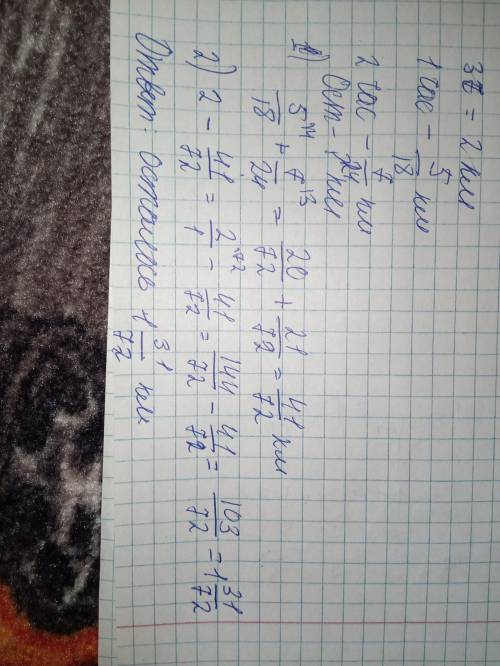 3ч = 2 км
1 час - 5/18 км
2 час - 7/24 км
Ост - ? км
1) 5/18 + 7/24 = 20/72 + 21/72 = 41/72 км
2) 2 - 41/72 = 2/1 - 41/72 = 144/72 - 41/72 = 103/72 = 1 31/72
Ответ: осталось 1 31/72 км